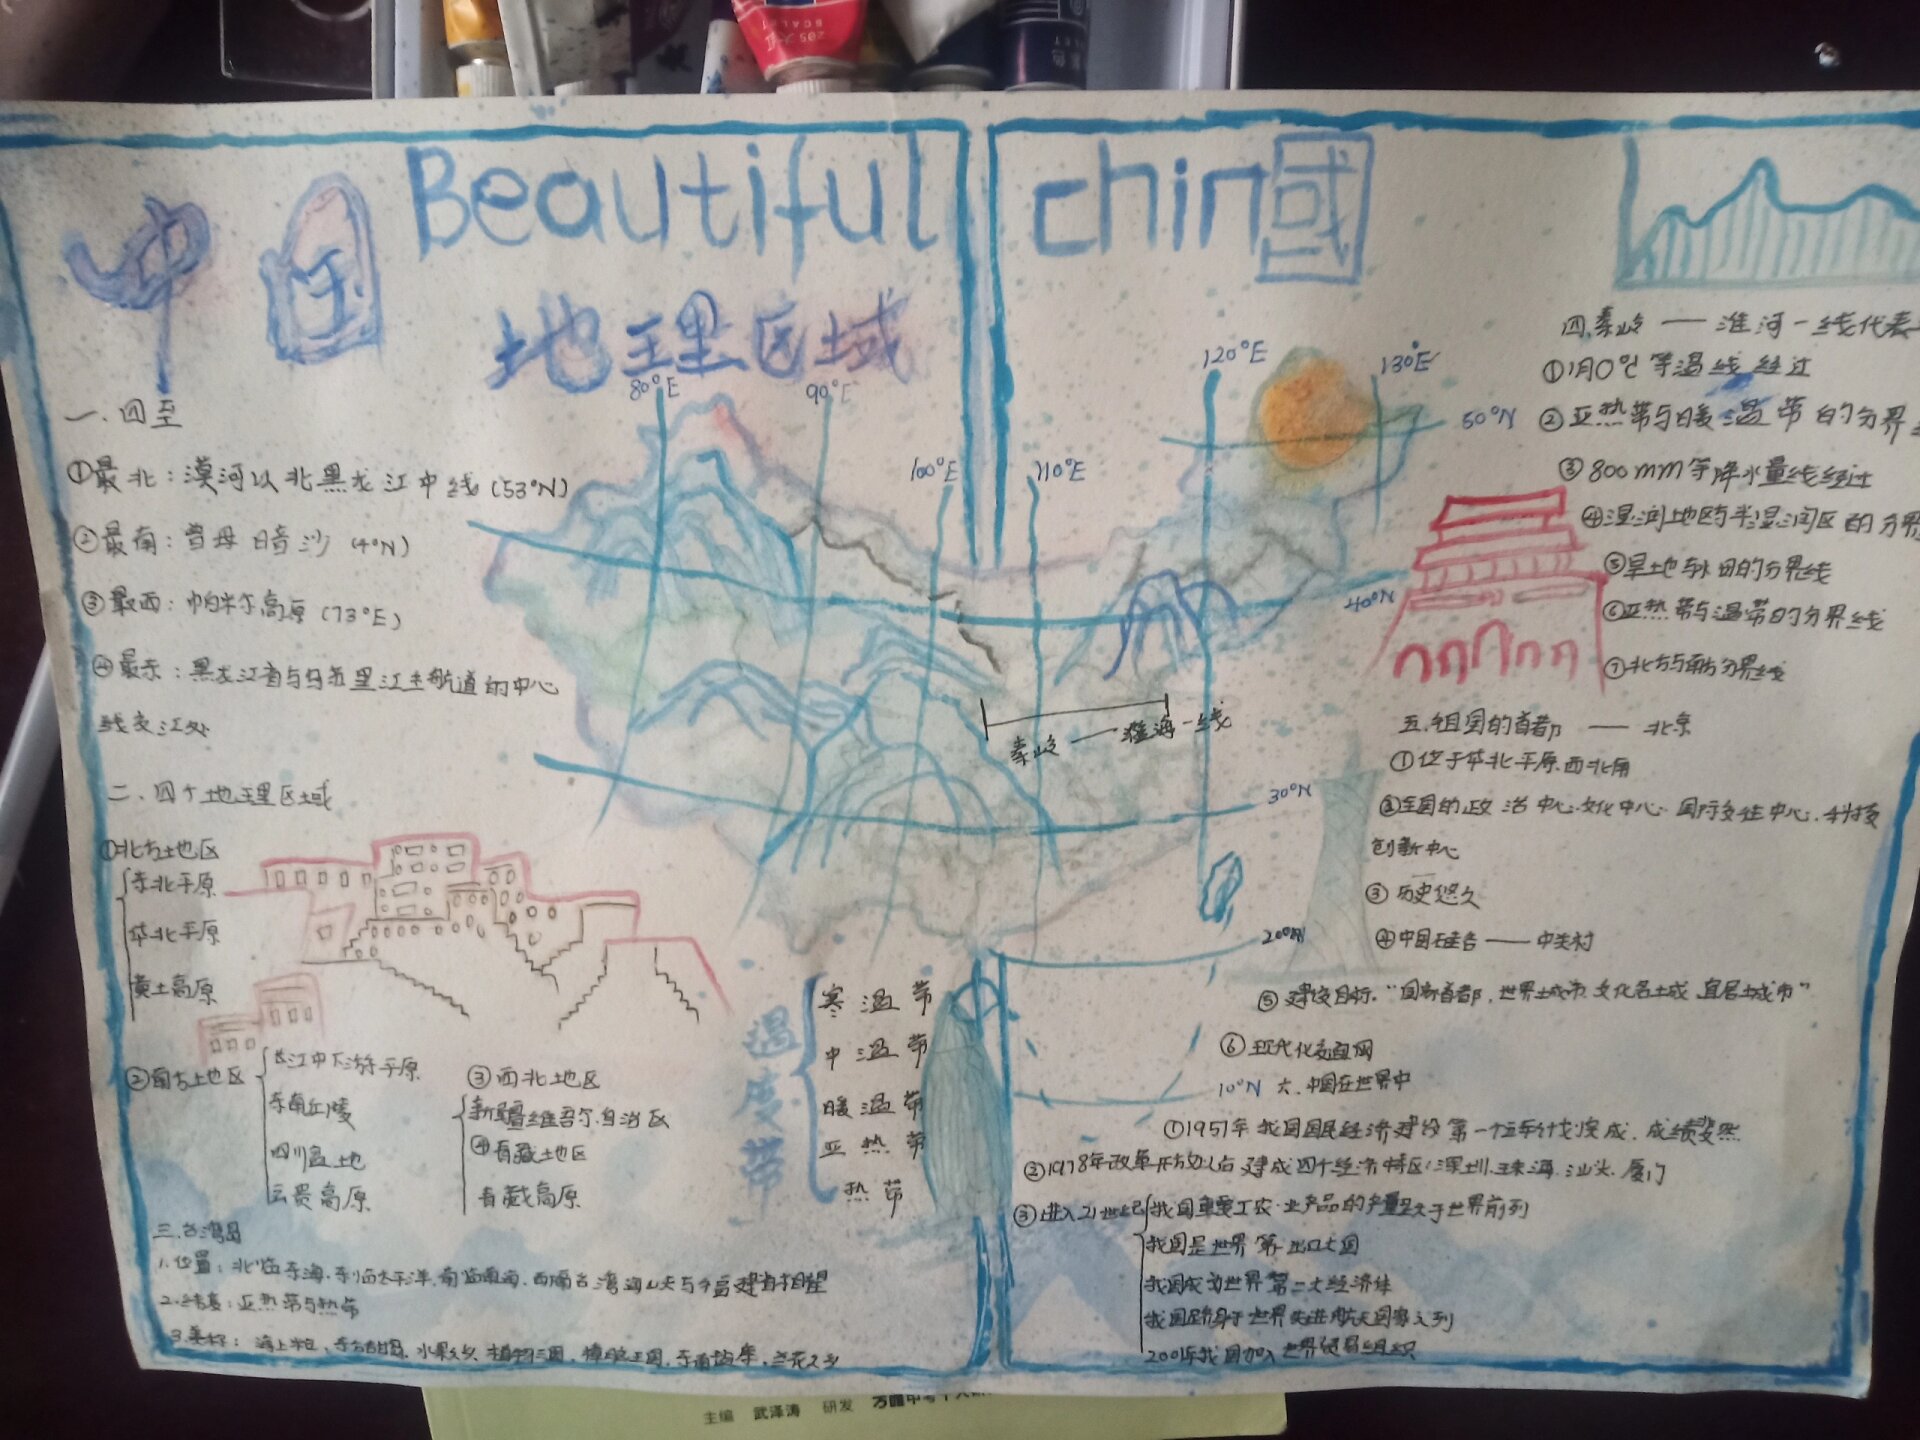 Beautiful
chin國
中国
地理区域
80°E
90°E
100°E
110°E
120°E
130°E
50°N
40°N
30°N
20°N
10°N
秦岭——淮海一线
一、四至
①最北：漠河以北黑龙江中线(53°N)
②最南：曾母暗沙(4°N)
③最西：帕米尔高原(73°E)
④最东：黑龙江省与乌苏里江主航道的中心
线交江处
二、四个地理区域
①北方地区
东北平原
华北平原
黄土高原
②南方地区
长江中下游平原
东南丘陵
四川盆地
云贵高原
③西北地区
新疆维吾尔自治区
④青藏地区
青藏高原
温度带
寒温带
中温带
暖温带
亚热带
热带
三、台湾岛
1.位置：北临东海,东临太平洋,南临南海,西隔台湾海峡与福建省相望
2.纬度：亚热带与热带
3.美称：海上米仓,东方甜岛,水果之乡,植物王国,东南盐库,兰花之乡
四、秦岭——淮河一线代表
①1月0℃等温线经过
②亚热带与暖温带的分界
③800mm等降水量线经过
④湿润地区与半湿润区的分界
⑤旱地与水田的分界线
⑥亚热带与温带的分界线
⑦北方与南方分界线
五、祖国的首都——北京
①位于华北平原西北角
②全国的政治中心.文化中心.国际交往中心.科技
创新中心
③历史悠久
④中国硅谷——中关村
⑤建设目标."国家首都,世界城市,文化名城,宜居城市"
⑥现代化交通网
六、中国在世界中
①1957年我国国民经济建设第一个五年计划完成,成绩斐然
②1978年改革开放以后建成四个经济特区:深圳.珠海.汕头.厦门
③进入21世纪
我国重要工农业产品的产量居于世界前列
我国是世界第一出口大国
我国成为世界第二大经济体
我国跻身于世界先进航天国家之列
2001年我国加入世界贸易组织
主编 武泽涛 研发